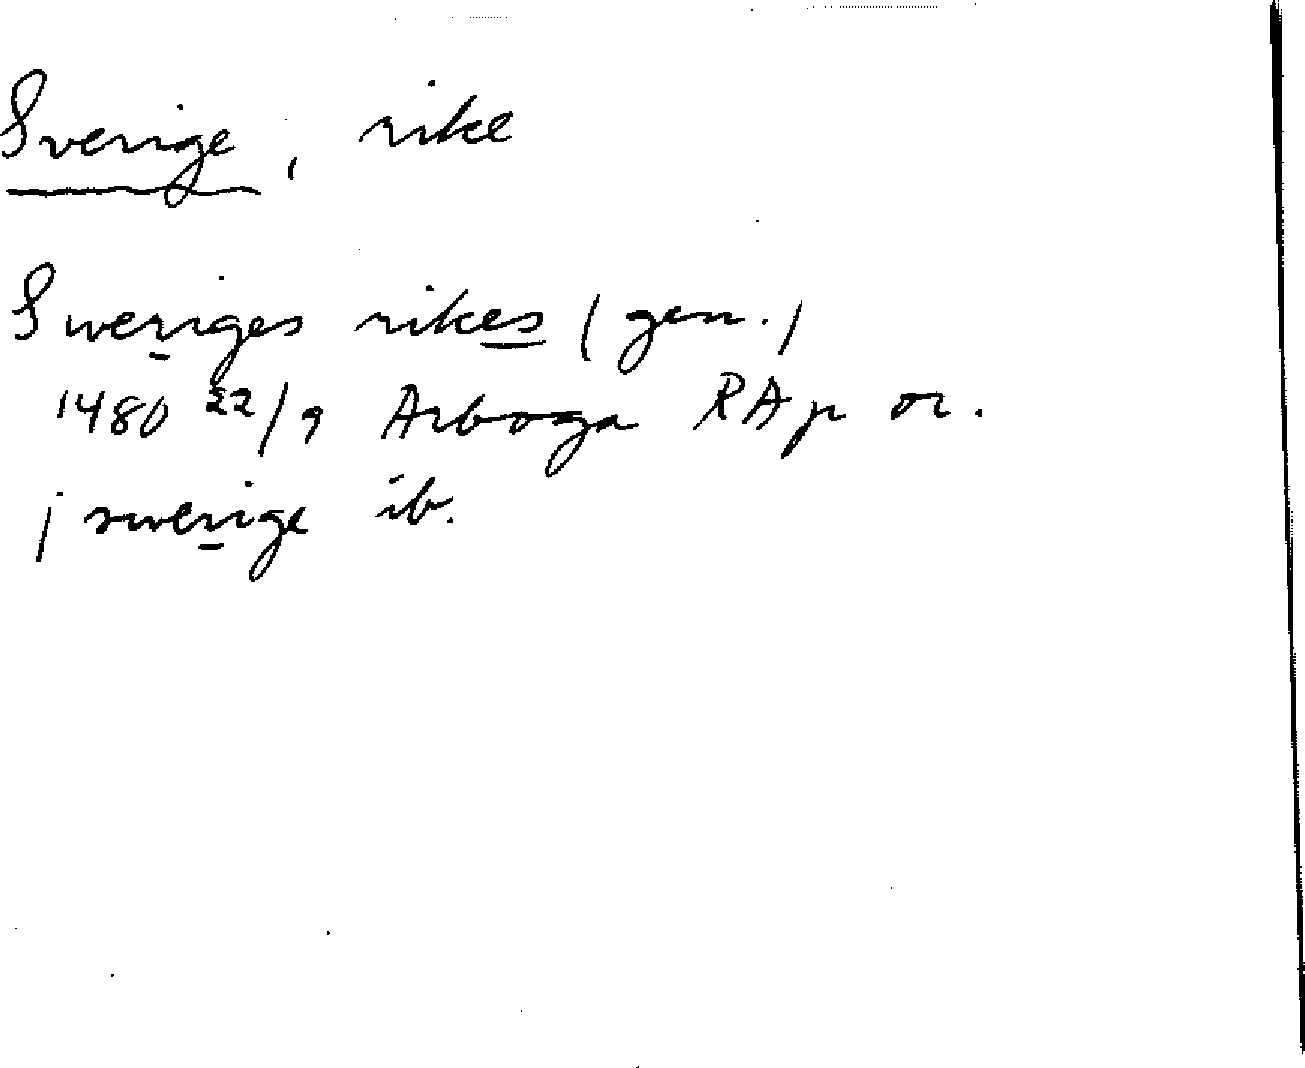 Sverige, rike
Sweriges rikes (gen.)
1480 22/9 Arboga RAp or.
j swerige ib.